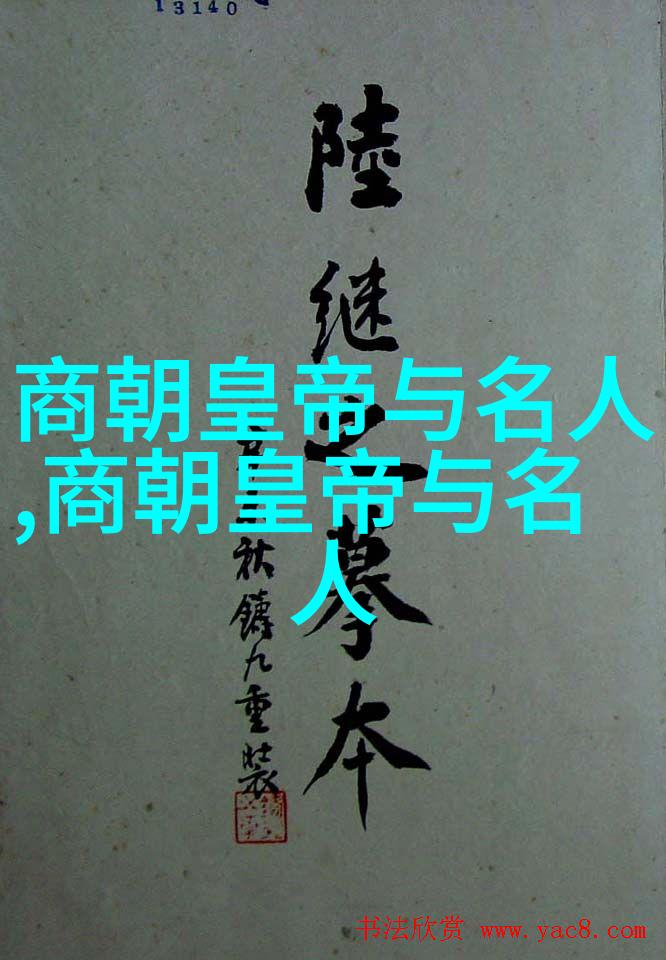 13140
陸继之摹本
秋鑄九重裝
商朝皇帝与名人
,商朝皇帝与名
人
书法欣赏 www.yac8.com